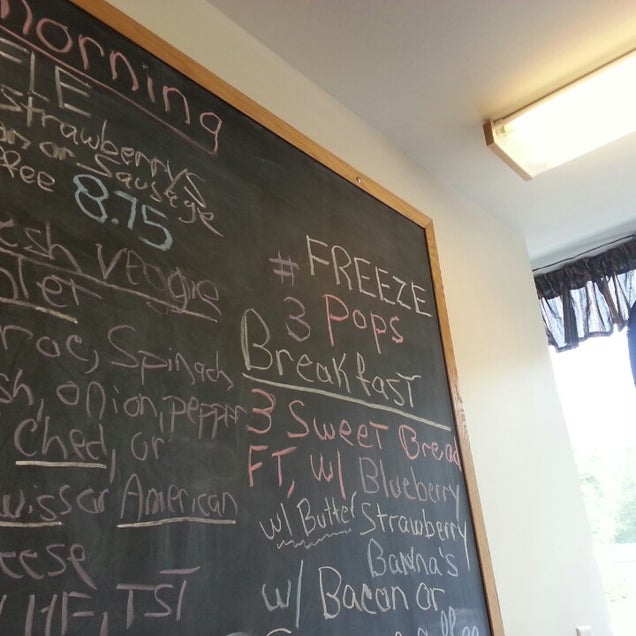 morning
FLE
strawberry's
on or Sausage
ffee 8.75
esh veggie
mlet
roc, Spinach
sh, onion, pepper
Ched, or
wiss or American
eese
HF, TST
# FREEZE
3 Pops
Breakfast
3 Sweet Bread
FT, w/ Blueberry
w/ Butter Strawberry
Banna's
w/ Bacon or